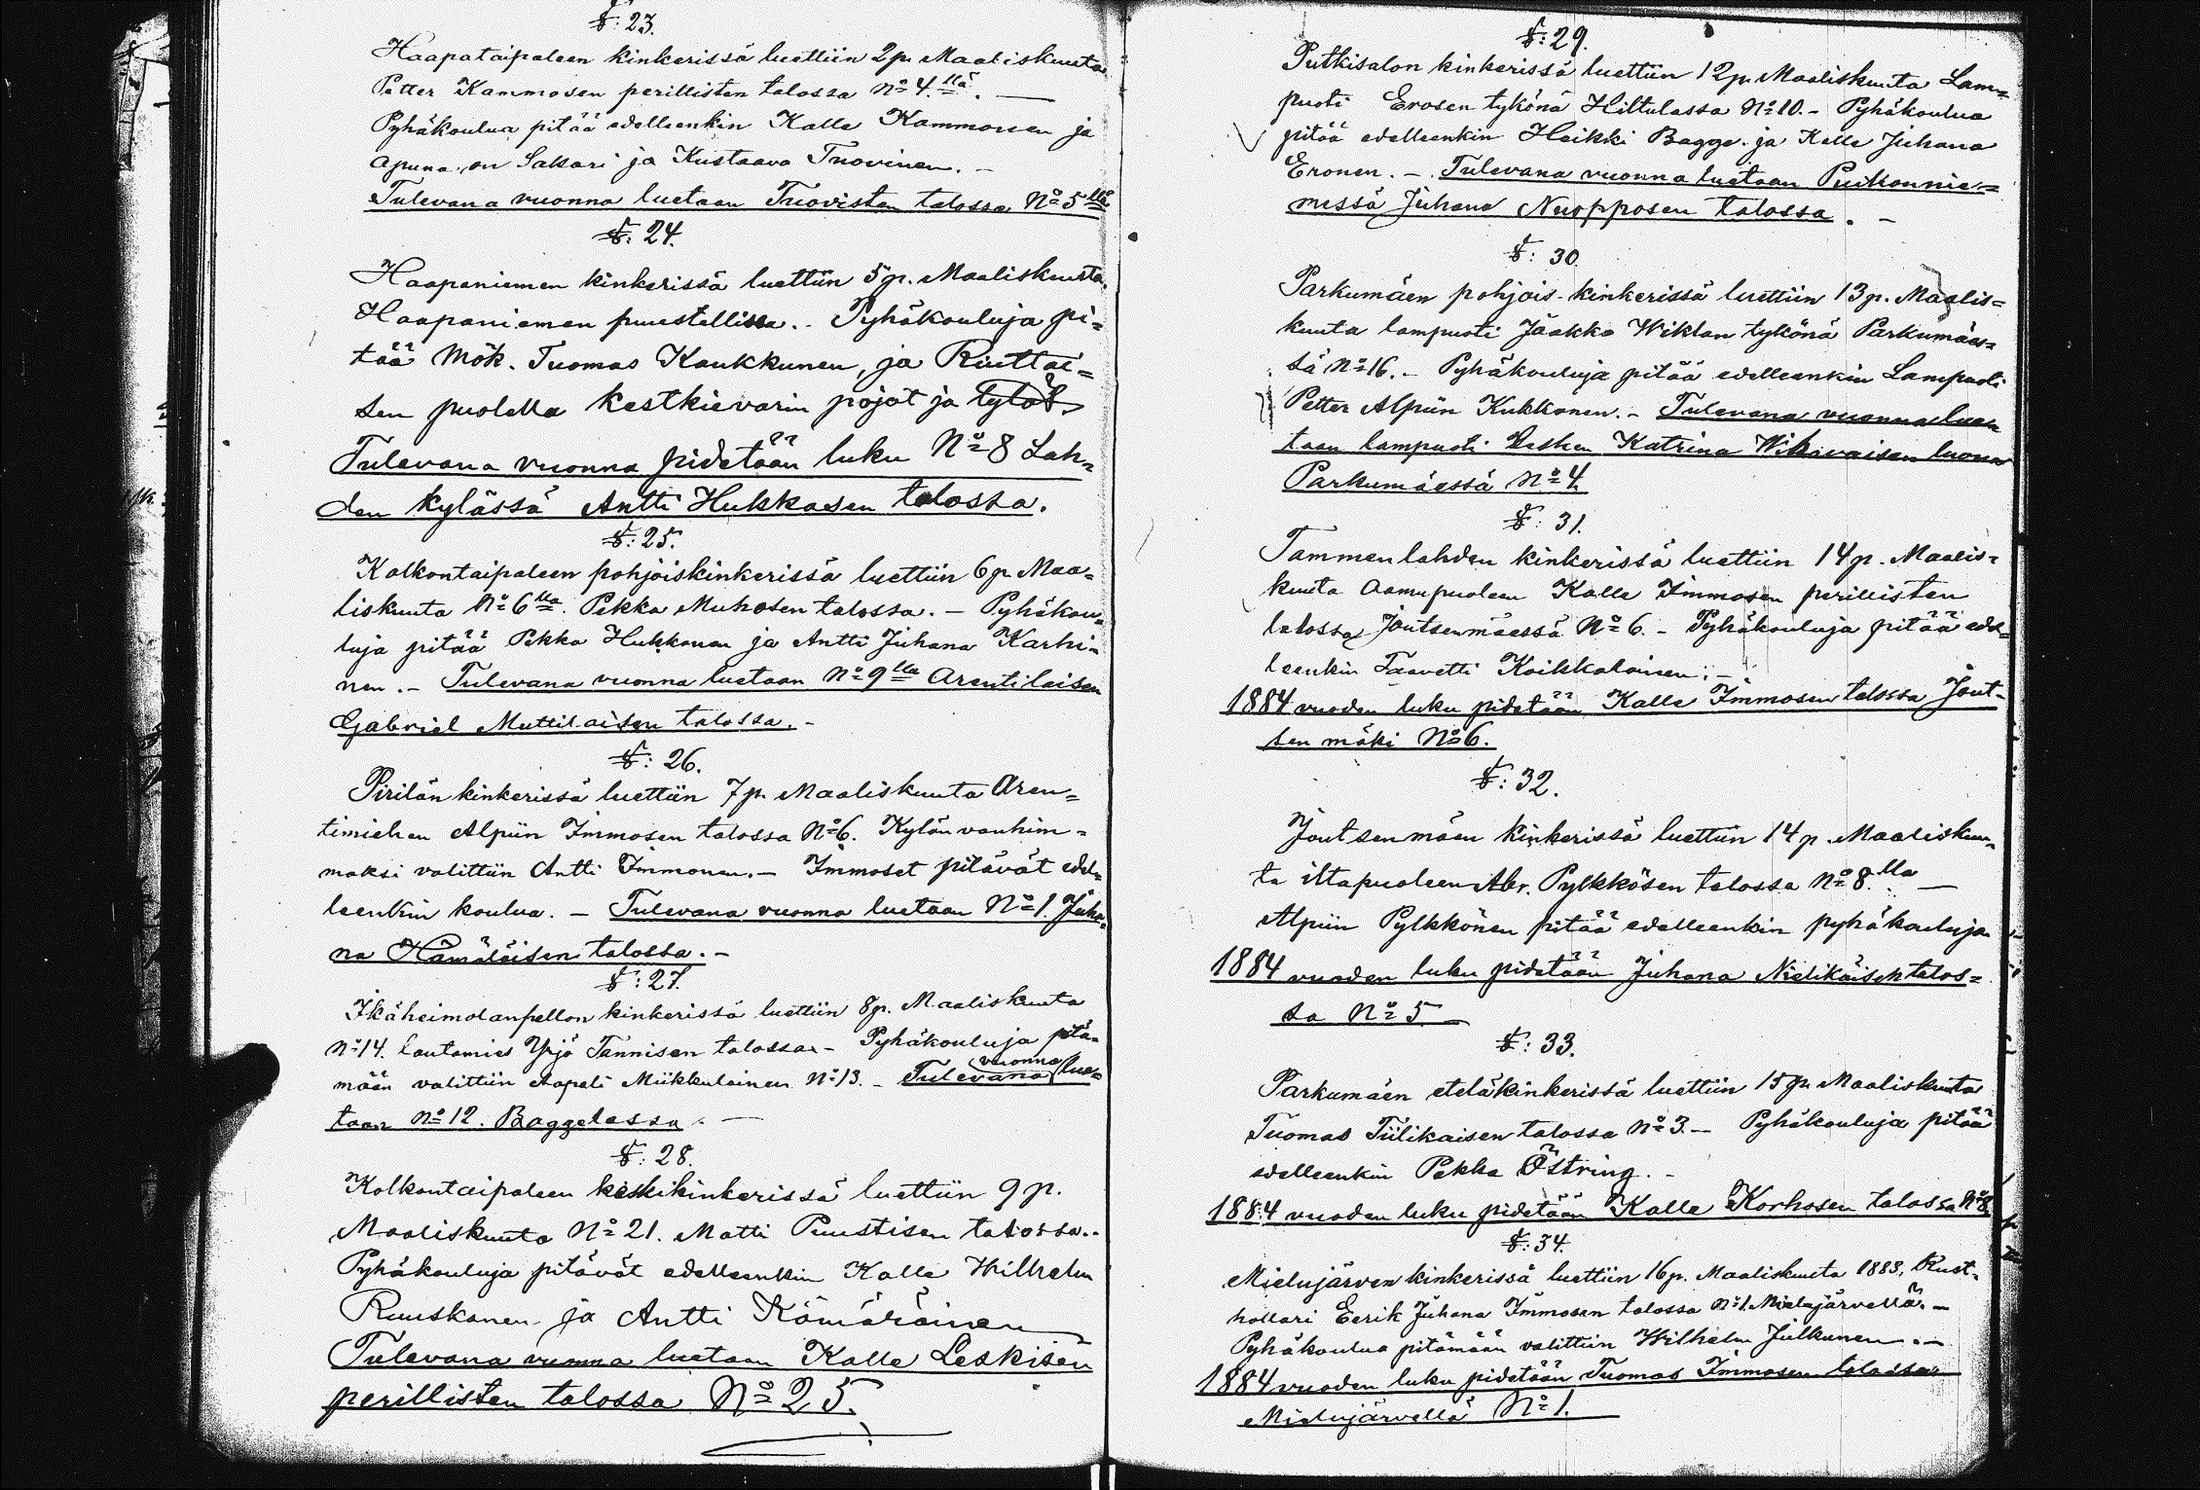 §: 23.
Haapataipaleen kinkerissä luettiin 2 p. Maaliskuuta
Petter Kammosen perillisten talossa No 4.llä. —
Pyhäkoulua pitää edelleenkin Kalle Kammonen ja
apuna on Sakari ja Kustaava Tuovinen. —
Tulevana vuonna luetaan Tuovisten talossa No 5llä
§: 24.
Haapaniemen kinkerissä luettiin 5 p. Maaliskuuta
Haapaniemen puustellissa. Pyhäkouluja pi=
tää Mök. Tuomas Kaukkunen, ja Riuttai=
sen puolella kestkievarin pojat ja tytöt.
Tulevana vuonna pidetään luku No 8 Lah=
den kylässä Antti Hukkasen talossa.
§: 25.
Kolkontaipaleen pohjoiskinkerissä luettiin 6 p. Maa=
liskuuta No 6lla. Pekka Muhosen talossa. — Pyhäkou=
luja pitää Pekka Hukkanen ja Antti Juhana Karhi=
nen. — Tulevana vuonna luetaan No 9llä Arentilaisen
Gabriel Muttilaisen talossa. —
§: 26.
Pirilän kinkerissä luettiin 7 p. Maaliskuuta Aren=
timiehen Alpiin Immosen talossa No 6. Kylän vanhim=
maksi valittiin Antti Immonen. — Immoset pitävät edel=
leenkin koulua. — Tulevana vuonna luetaan No 1. Juha=
na Hämäläisen talossa. —
§: 27.
Ikäheimolanpellon kinkerissä luettiin 8 p. Maaliskuuta
No 14. lautamies Yrjö Tannisen talossa — Pyhäkouluja pitä=
mään valittiin Aapeli Miikkulainen No 13. — Tulevana vuonna lue=
taan No 12. Baggelassa. —
§: 28.
Kolkontaipaleen keskikinkerissä luettiin 9 p.
Maaliskuuta No 21. Matti Puustisen talossa.
Pyhäkouluja pitävät edelleenkin Kalle Wilhelm
Ruuskanen ja Antti Kämäräinen
Tulevana vuonna luetaan Kalle Leskisen
perillisten talossa No 25.
§: 29.
Putkisalon kinkerissä luettiin 12 p. Maaliskuuta Lam=
puoti Erosen tykönä Hiltulassa No 10. — Pyhäkoulua
pitää edelleenkin Heikki Bagge ja Kalle Juhana
Eronen. — Tulevana vuonna luetaan Putkonnie=
messä Juhana Nuopposen talossa. —
§: 30.
Parkumäen pohjois-kinkerissä luettiin 13 p. Maalis=
kuuta lampuoti Jaakko Wiklan tykönä Parkumäes=
sä No 16. — Pyhäkouluja pitää edelleenkin Lampuoti
Petter Alpiin Kukkonen. — Tulevana vuonna lue=
taan lampuoti lesken Katrina Wihavaisen luona
Parkumäessä No 4.
§: 31.
Tammenlahden kinkerissä luettiin 14 p. Maalis=
kuuta aamupuoleen Kalle Immosen perillisten
talossa Joutsenmäessä No 6. — Pyhäkouluja pitää edel=
leenkin Taavetti Koikkalainen. —
1884 vuoden luku pidetään Kalle Immosen talossa Jout=
sen mäki No 6.
§: 32.
Joutsenmäen kinkerissä luettiin 14 p. Maaliskuu=
ta iltapuoleen Abr. Pylkkösen talossa No 8.lla —
Alpiin Pylkkönen pitää edelleenkin pyhäkouluja
1884 vuoden luku pidetään Juhana Nielikäisen talos=
sa No 5
§: 33.
Parkumäen eteläkinkerissä luettiin 15 p. Maaliskuuta
Tuomas Tiilikaisen talossa No 3. — Pyhäkouluja pitää
edelleenkin Pekka Östring. —
1884 vuoden luku pidetään Kalle Korhosen talossa No 8
§: 34.
Mielujärven kinkerissä luettiin 16 p. Maaliskuuta 1883, Rust=
hollari Eerik Juhana Immosen talossa No 1. Mielujärvellä. —
Pyhäkoulua pitämään valittiin Wilhelm Julkunen. —
1884 vuoden luku pidetään Tuomas Immosen talossa
Mielujärvellä No 1.